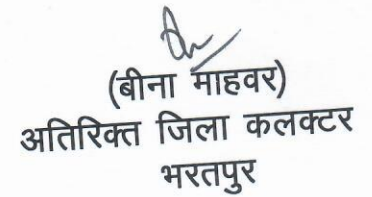 (बीना माहवर)
अतिरिक्त जिला कलक्टर
भरतपुर